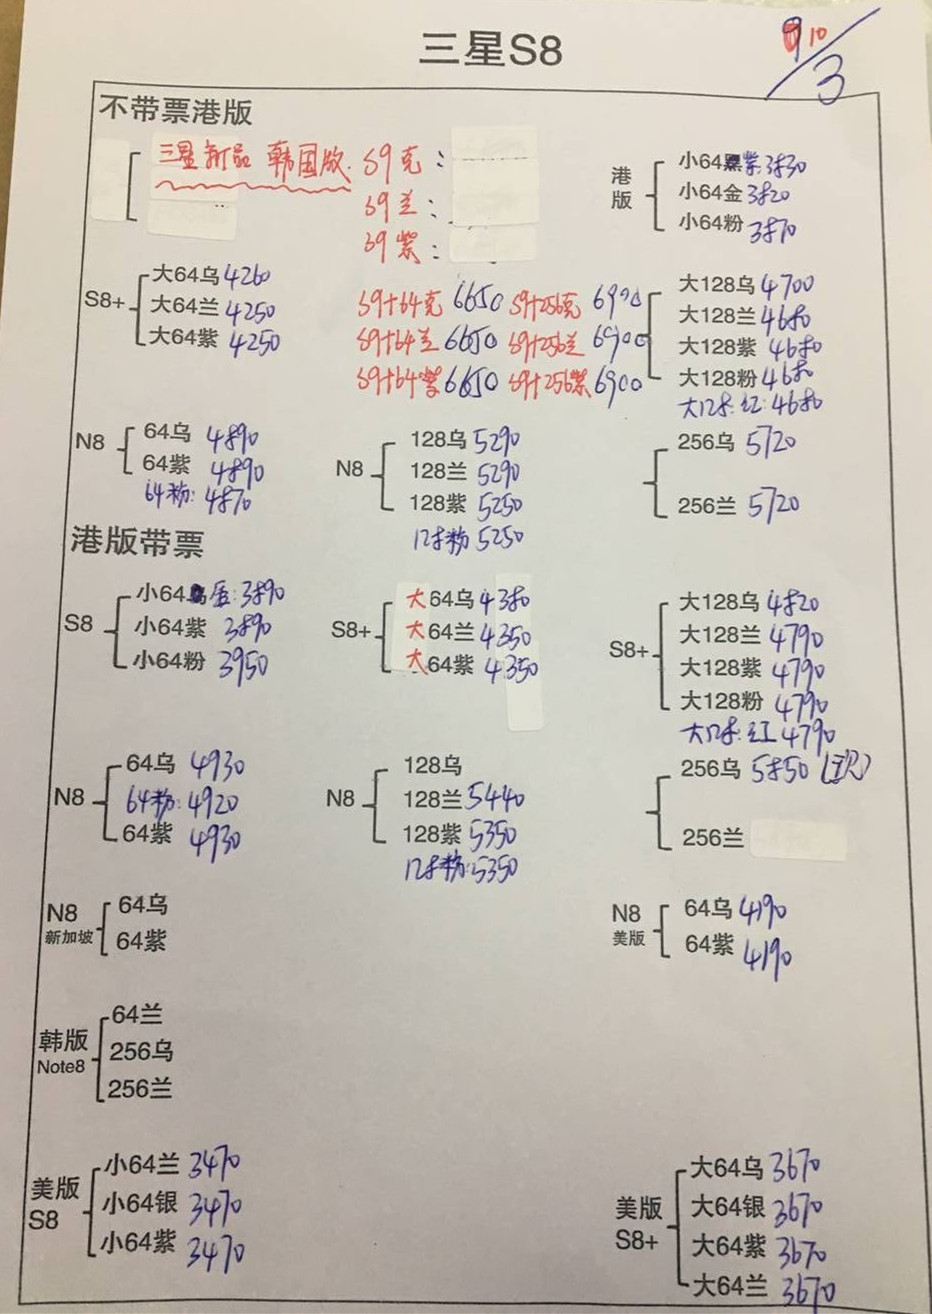 三星S8
10/3
不带票港版
三星新品 韩国版. S9克:
S9兰:
S9紫:
港版
小64紫3830
小64金3820
小64粉3870
S8+
大64乌4260
大64兰4250
大64紫4250
S9+64克6650 S9+256克6900
S9+64兰6650 S9+256兰6900
S9+64紫6650 S9+256紫6900
大128乌4700
大128兰4680
大128紫4680
大128粉4680
大128.红:4680
N8
64乌4890
64紫4890
64粉:4870
N8
128乌5290
128兰5290
128紫5250
128粉5250
256乌5720
256兰5720
港版带票
S8
小64金:3890
小64紫3890
小64粉3950
S8+
大64乌4380
大64兰4350
大64紫4350
S8+
大128乌4820
大128兰4790
大128紫4790
大128粉4790
大128.红4790
N8
64乌4930
64粉:4920
64紫4930
N8
128乌
128兰5440
128紫5350
128粉:5350
256乌5850
256兰
N8
新加坡
64乌
64紫
N8
美版
64乌4190
64紫4190
韩版
Note8
64兰
256乌
256兰
美版
S8
小64兰3470
小64银3470
小64紫3470
美版
S8+
大64乌3670
大64银3670
大64紫3670
大64兰3670